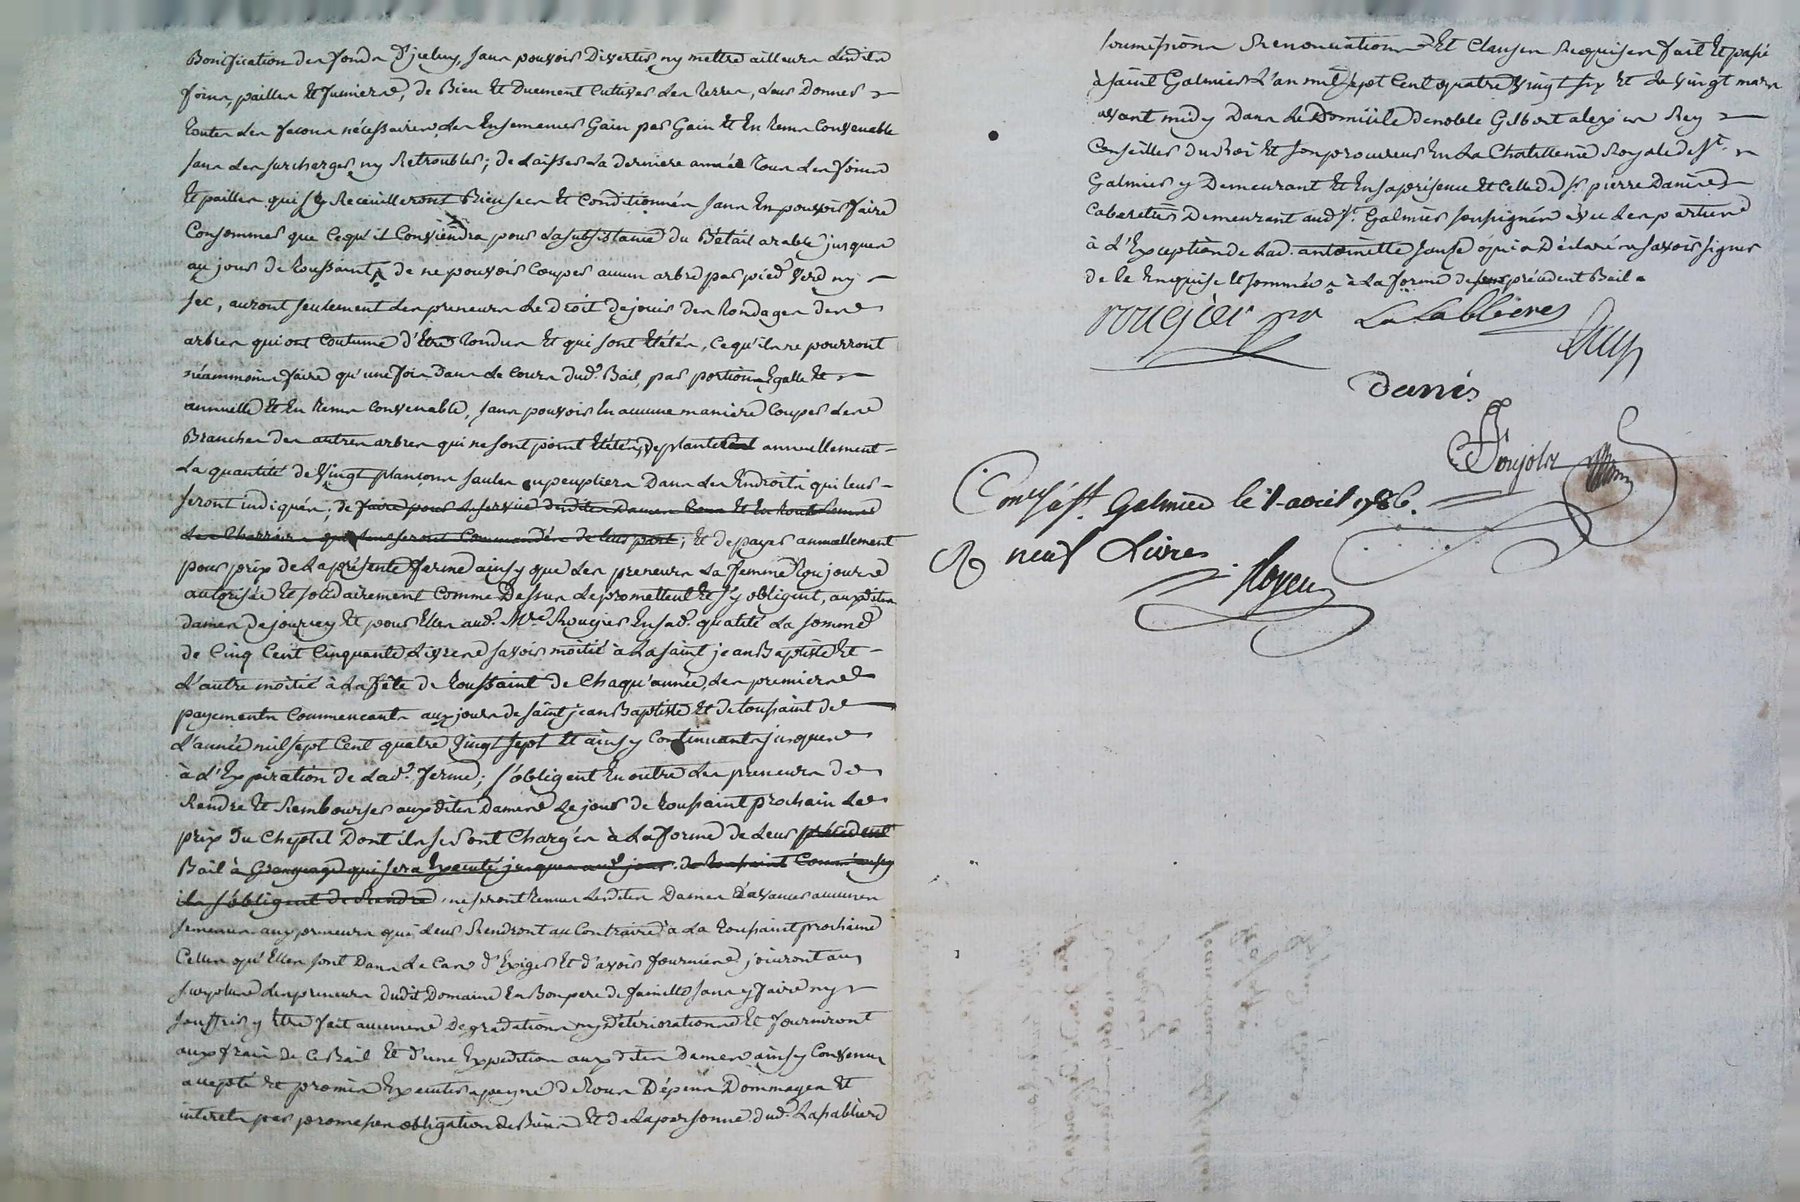 Bonification des fonds d'jceluy, sans pouvoir divertir ny mettre ailleurs lesdits
foins, pailles et fumiers, de bien et duement cultiver les terres, leur donner
toutes les facons nécéssaires, les ensemencer Gain par Gain et en tems convenable
sans les surcharger ny retroubler; de laisser la derniere année tous les foins
et pailles qui s'y receuilleront bien secs et conditionnés sans en pouvoir faire
consommer que ce qu'il conviendra pour la subsistance du Bétail arable jusques
au jour de toussaint, de ne pouvoir couper aucun arbre par pied verd ny
sec, auront seulement les preneurs le droit de jouir des tondages des
arbres qui ont coutume d'être tondus et qui sont étêtés, ce qu'ils ne pourront
néammoins faire qu'une fois dans le cours dud. Bail, par portion Egalle et
annuelle et en tems convenable, sans pouvoir en aucune maniere couper les
Branches des autres arbres qui ne sont point étêtés, de planter annuellement
la quantité de vingt plançons saules ou peupliers dans les endroits qui leur
seront indiqués; de faire pour le service desdites Dames tous et en tout tems
les Charrois qui leur seront commandés de leur part; et de payer annuellement
pour prix de la présente ferme ainsy que les preneurs la femme toujours
autorisée et solidairement comme dessus le promettent et s'y obligent, auxdites
dames de jourcey et pour elles aud. Mre Rougier en sad. qualité la somme
de cinq cent cinquante livres savoir moitié à la saint jean Baptiste et
l'autre moitié à la fête de toussaint de chaqu'année, les premiers
payements commencants aux jours de saint jean Baptiste et de toussaint de
l'année mil sept cent quatre vingt sept et ainsy continuant jusques
à l'Expiration de lad. ferme; s'obligent en outre les preneurs de
rendre et rembourser auxdites Dames le jour de toussaint prochain le
prix du cheptel dont ils se sont chargés à la forme de leur précédent
Bail à Grangeage qui sera executé jusques aud. jour de toussaint comme aussy
ils s'obligent de rendre, ne seront tenues lesdites Dames d'avancer aucunes
semences aux preneurs qui leur rendront au contraire à la toussaint prochaine
celles qu'elles sont dans le cas d'exiger et d'avoir fournies; jouiront au
surplus les preneurs dudit Domaine en Bon pere de famille sans y faire ny
souffrir y être fait aucunes dégradations ny détériorations et fourniront
aux frais de ce Bail et d'une Expédition auxdites dames ainsy convenu
accepté et promis executer a peyne de tous dépens dommages et
interets par promesses obligation de Biens et de la personne dud. Lasabliere
soumissions renonciations et clauses requises fait et passé
à saint Galmier l'an mil sept cent quatre vingt six et le vingt mars
avant midy dans le domicile de noble Gilbert alexis Rey
conseiller du Roi et son procureur en la Chatellenie Royale de St.
Galmier y demeurant et en sa présence et celle de Sr. pierre Danier
cabaretier demeurant aud. St. Galmier soussignés avec les parties
à l'Exception de lad. antoinette qui a déclaré ne savoir signer
de ce enquise et sommée à la forme de précédent Bail
rougier pr La Sabliere
Rey
danier
Poujola
Conlé à St. Galmier le 1 avril 1786.
R neuf livres